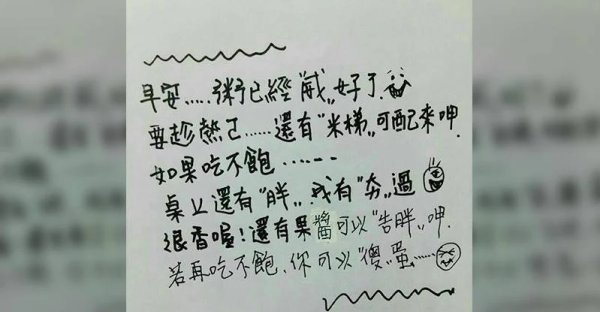 早安.....粥已經"威"好了.
要趁熱ㄘ.....還有"米梯"可配來呷.
如果吃不飽......
桌上還有"胖".我有"夯"過
很香喔!還有果醬可以"告胖"呷.
若再吃不飽、你可以"傻"蛋.....